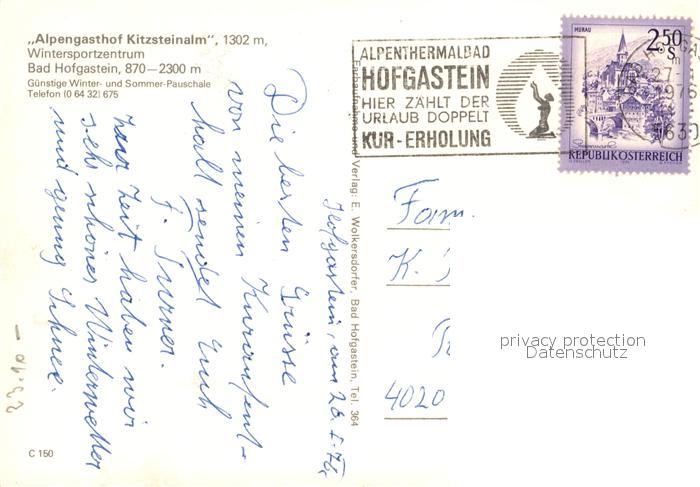 „Alpengasthof Kitzsteinalm“, 1302 m,
Wintersportzentrum
Bad Hofgastein, 870—2300 m
Günstige Winter- und Sommer-Pauschale
Telefon (0 64 32) 675
ALPENTHERMALBAD
HOFGASTEIN
HIER ZÄHLT DER
URLAUB DOPPELT
KUR-ERHOLUNG
MURAU
2.50
S
REPUBLIK ÖSTERREICH
Farbaufnahme und Verlag: E. Wolkersdorfer, Bad Hofgastein, Tel. 364
Hofgastein, am 26.
Die besten Grüsse
von meinen Kuraufent-
halt sendet Euch
F. Turner.
zur Zeit haben wir
sehr schönes Winterwetter
und genug Schnee.
Fam.
K.
4020
privacy protection
Datenschutz
23.10 –
C 150